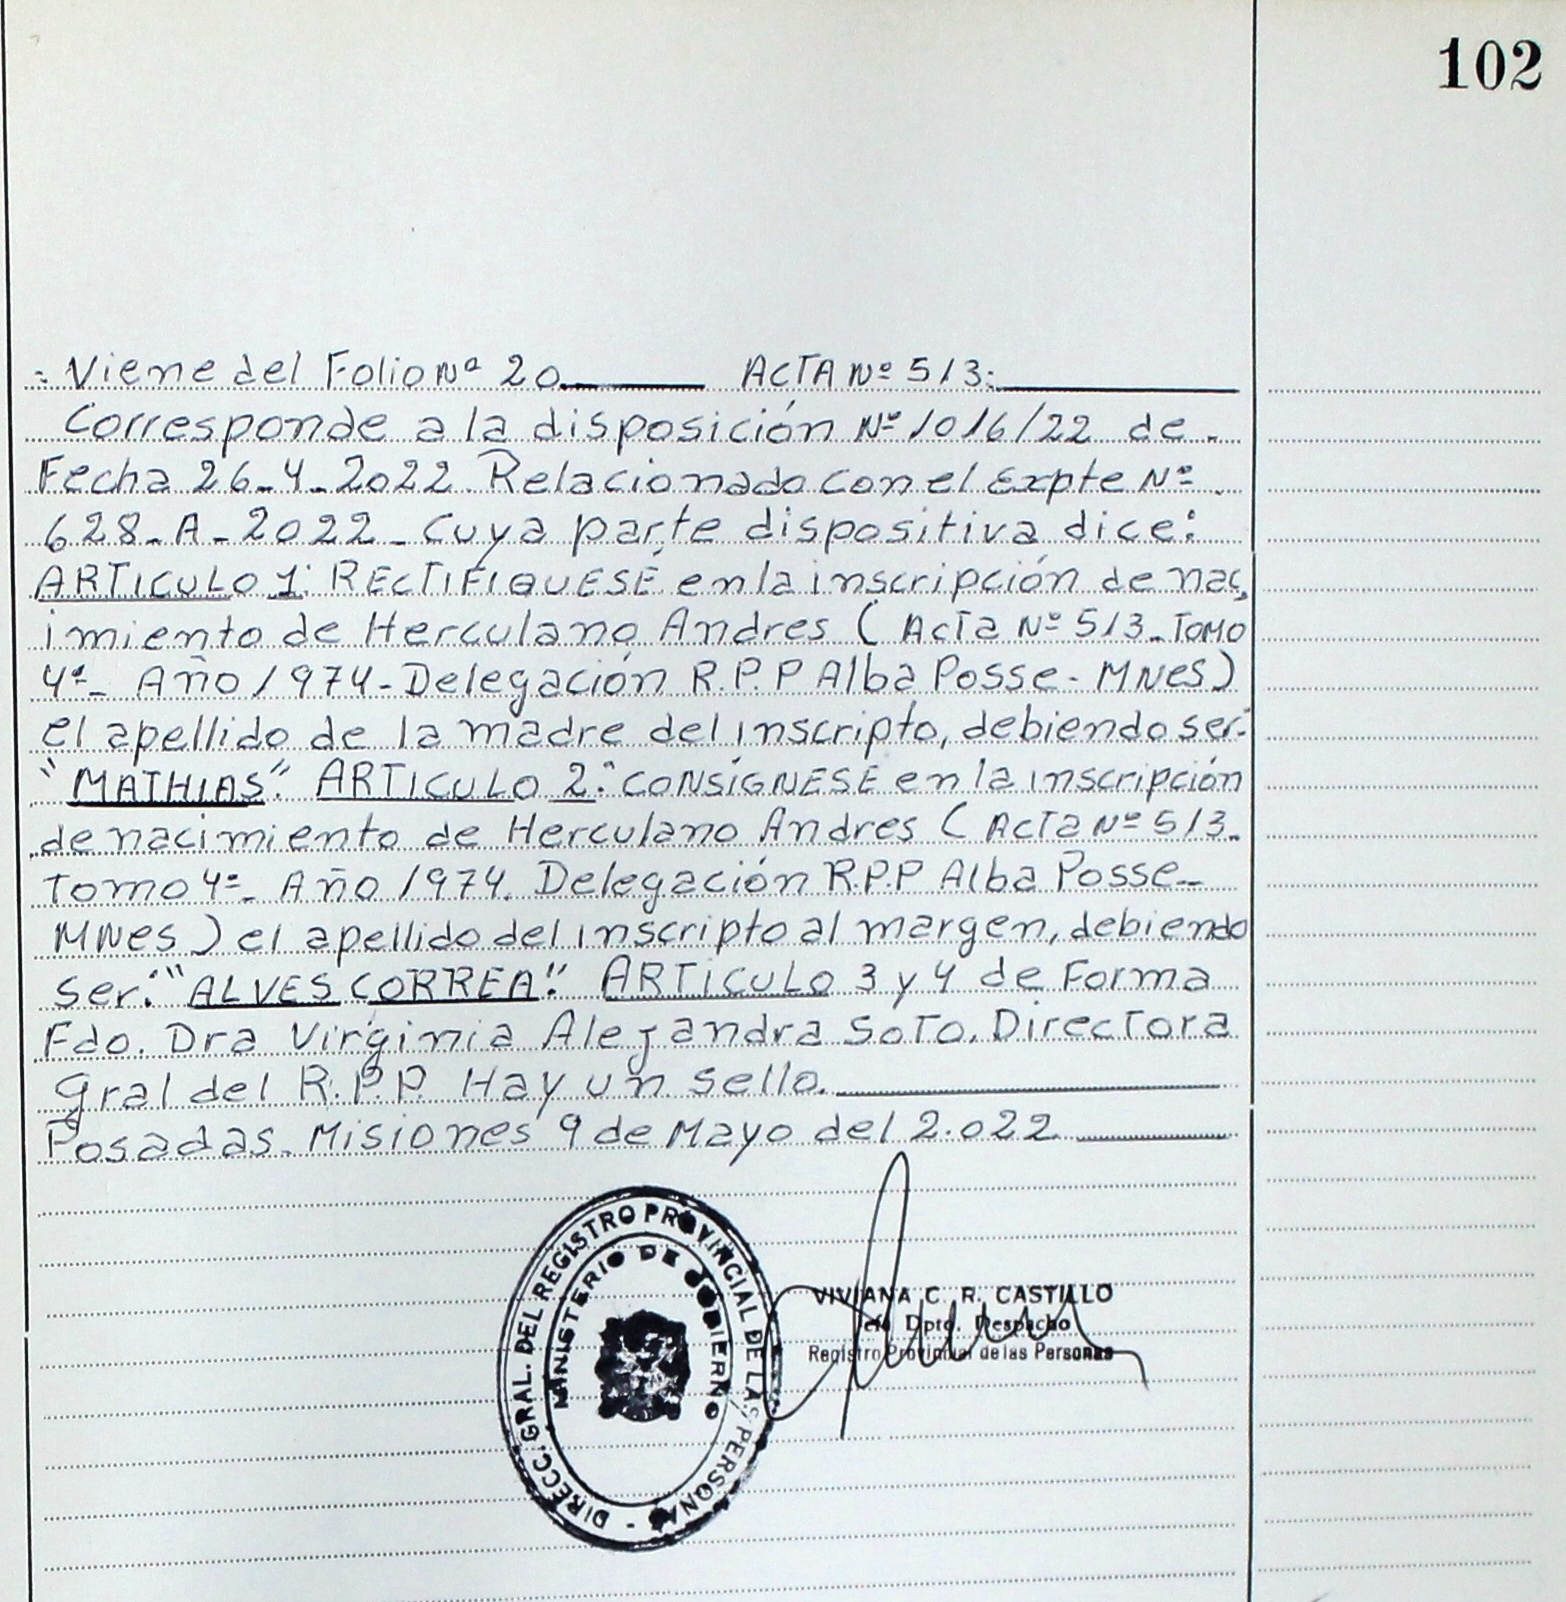 102
Viene del Folio Nº 20 ACTA Nº 513:
Corresponde a la disposición Nº 1016/22 de
Fecha 26-4-2022. Relacionado con el Expte Nº
628-A-2022 - Cuya parte dispositiva dice:
ARTICULO 1: RECTIFÍQUESE en la inscripción de nac
imiento de Herculano Andres (Acta Nº 513-TOMO
4º- Año 1974-Delegación R.P.P Alba Posse- MNES)
el apellido de la madre del inscripto, debiendo ser:
"MATHIAS". ARTICULO 2: CONSÍGNESE en la inscripción
de nacimiento de Herculano Andres (Acta Nº 513-
Tomo 4º- Año 1974. Delegación R.P.P Alba Posse-
MNes) el apellido del inscripto al margen, debiendo
ser: "ALVES CORREA". ARTICULO 3 y 4 de Forma
Fdo. Dra Virginia Alejandra Soto. Directora
Gral del R.P.P. Hay un sello.
Posadas. Misiones 9 de Mayo del 2.022
DIRECC. GRAL. DEL REGISTRO PROVINCIAL DE LAS PERSONAS -
MINISTERIO DE GOBIERNO
VIVIANA C. R. CASTILLO
Jefe Dpto. Despacho
Registro Provincial de las Personas